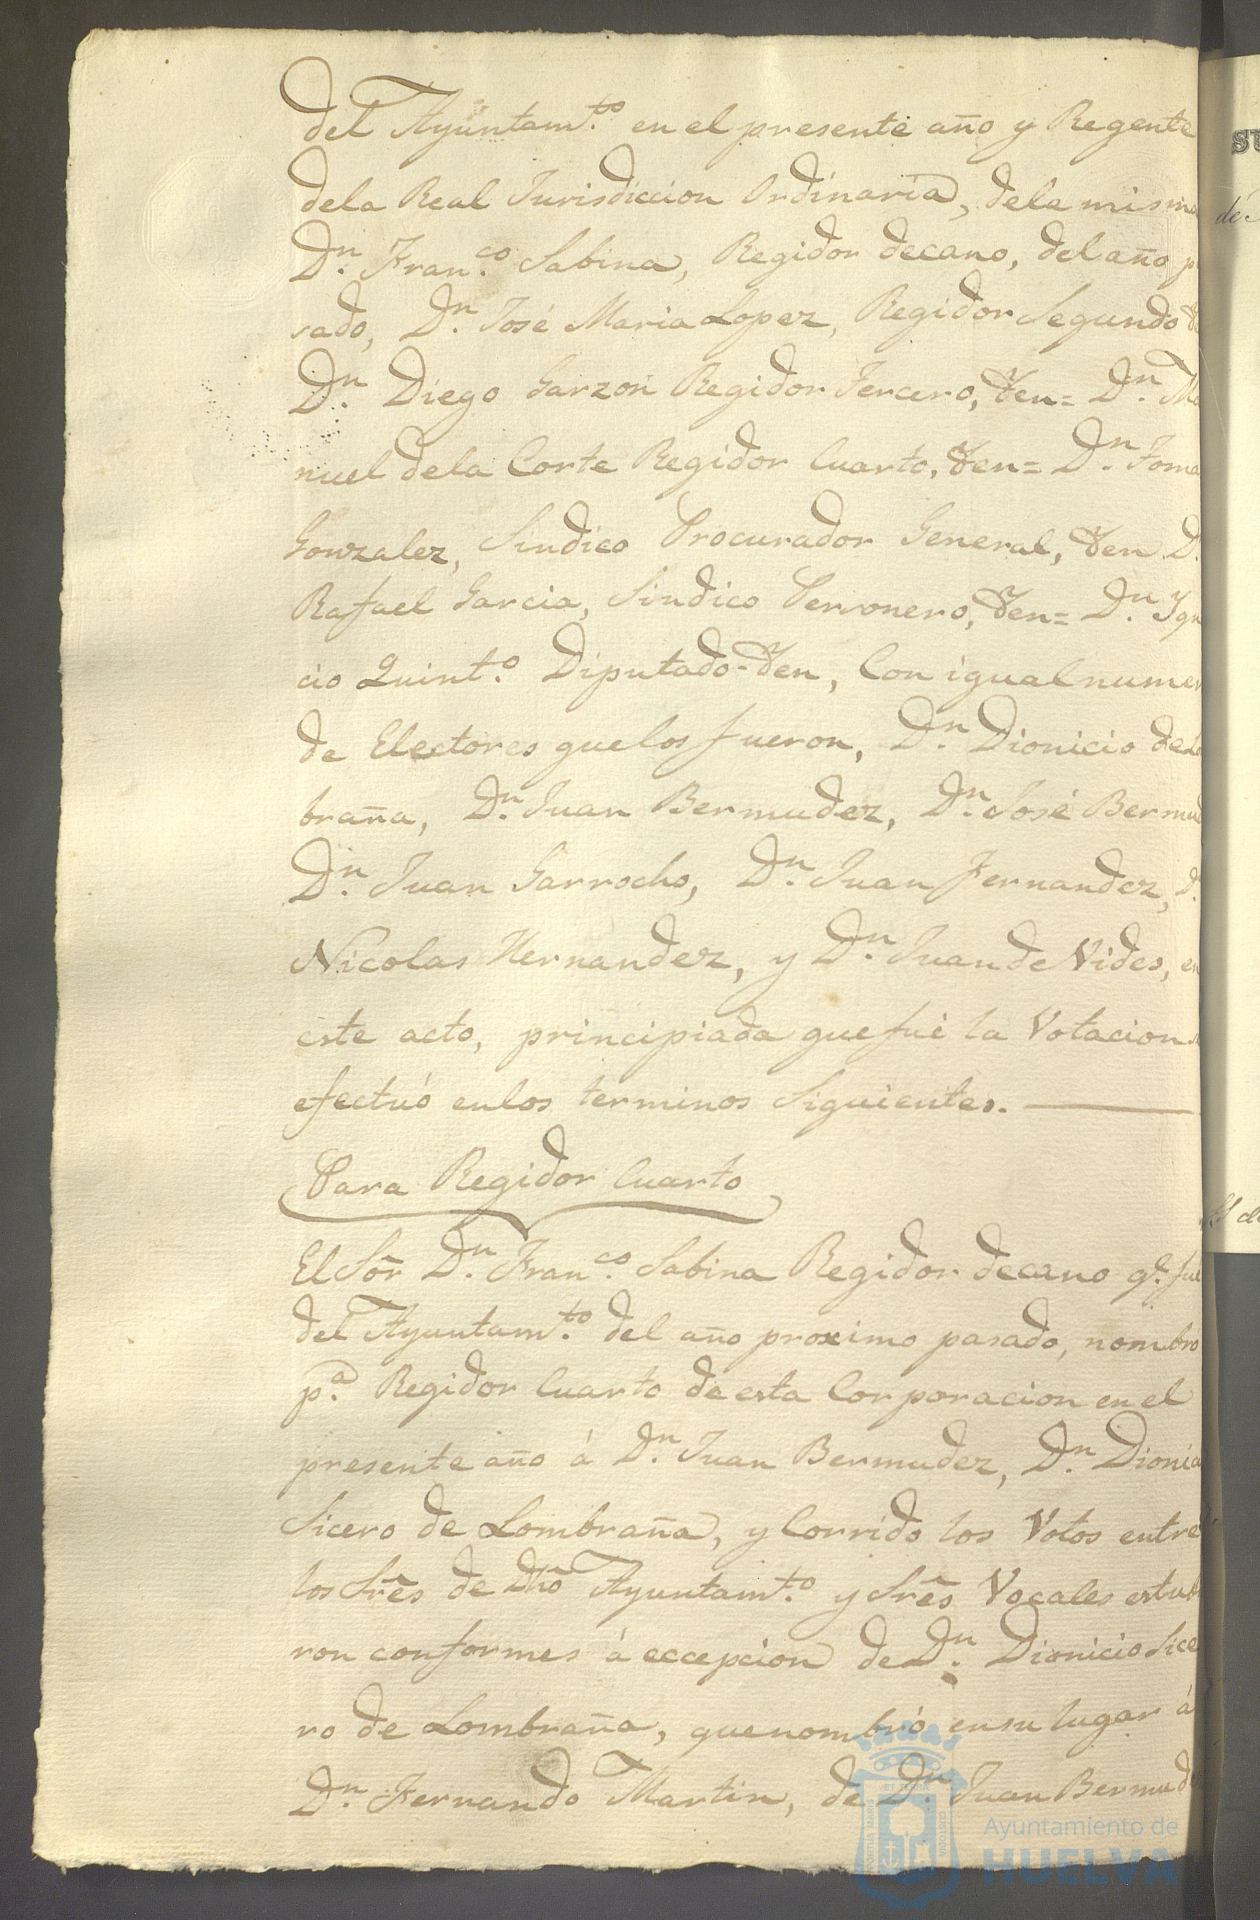 del Ayuntam.to en el presente año y Regente
dela Real Jurisdiccion Ordinaria, dela misma
Dn. Fran.co Sabina, Regidor decano, del año p
sado, Dn. José Maria Lopez, Regidor Segundo
Dn. Diego Garzon Regidor Tercero, Yden= Dn. Ma
nuel dela Corte Regidor Cuarto, Yden= Dn. Toma
Gonzalez, Sindico Procurador General, Yden D.
Rafael Garcia, Sindico Personero, Yden= Dn. Ygn
cio Quint.o Diputado Yden, Con igual numer
de Electores que los fueron, Dn. Dionicio de Lo
braña, Dn. Juan Bermudez, Dn. José Bermud
Dn. Juan Garrocho, Dn. Juan Fernandez, D.
Nicolas Hernandez, y Dn. Juan de Vides, en
este acto, principiada que fué la Votacion
efectuó enlos terminos Siguientes.
Para Regidor Cuarto
El Sõr Dn. Fran.co Sabina Regidor decano q.e fue
del Ayuntam.to del año proximo pasado, nombro
p.a Regidor Cuarto de esta Corporacion en el
presente año á Dn. Juan Bermudez, Dn. Dionic
Sicero de Lombraña, y Corrido los Votos entre
los Srẽs de Dhõ Ayuntam.to y Srẽs Vocales estub
ron conformes á eccepcion de Dn. Dionicio Sice
ro de Lombraña, que nombró en su lugar á
Dn. Fernando Martin, de Dn. Juan Bermud
Ayuntamiento de
HUELVA